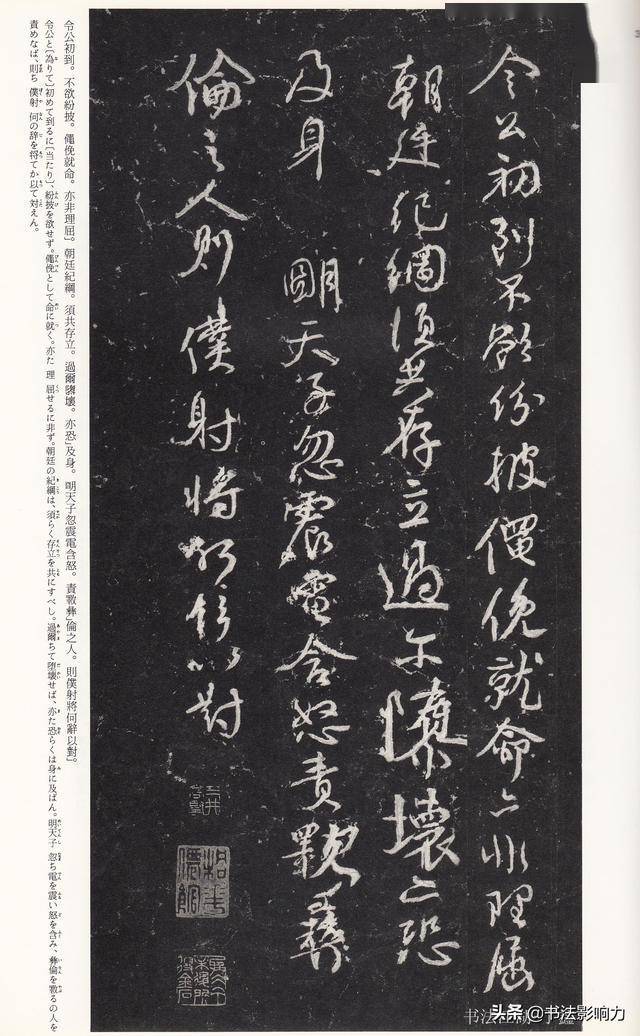 令公初到不欲紛披僶俛就命亦非理屈
朝廷紀綱須共存立過爾隳壞亦恐
及身 明天子忽震電含怒責斁彝
倫之人則 僕射將何辭以對
令公初到。不欲紛披。僶俛就命。亦非理屈」朝廷紀綱。須共存立。過爾隳壞。亦恐」及身。明天子忽震電含怒。責斁彝」倫之人。則僕射將何辭以對」。
令公と〔為りて〕初めて到るに〔当たり〕、紛披を欲せず。僶俛として命に就く。亦た 理 屈せるに非ず。朝廷の紀綱は、須らく存立を共にすべし。過爾ちて堕壊せば、亦た恐らくは身に及ばん。明天子 忽ち電を震い怒を含み、彝倫を斁るの人を
責めなば、則ち 僕射 何の辞を将てか以て対えん。
头条 @书法影响力